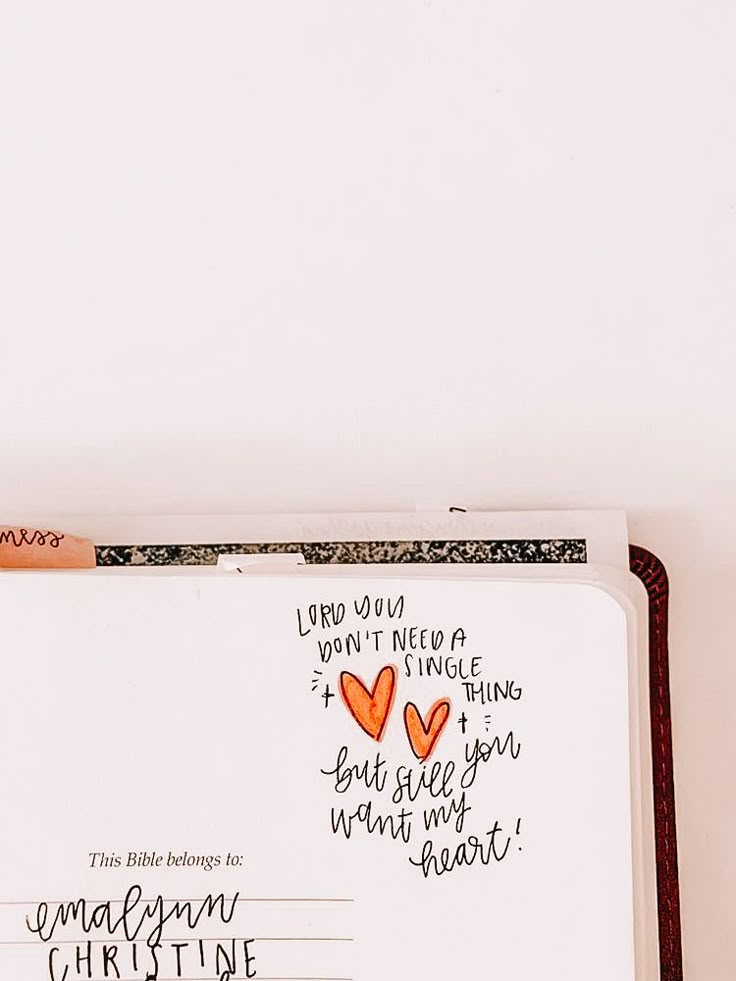 ness
LORD YOU
DON'T NEED A
SINGLE
THING
but still you
want my
heart!
This Bible belongs to:
emalynn
CHRISTINE